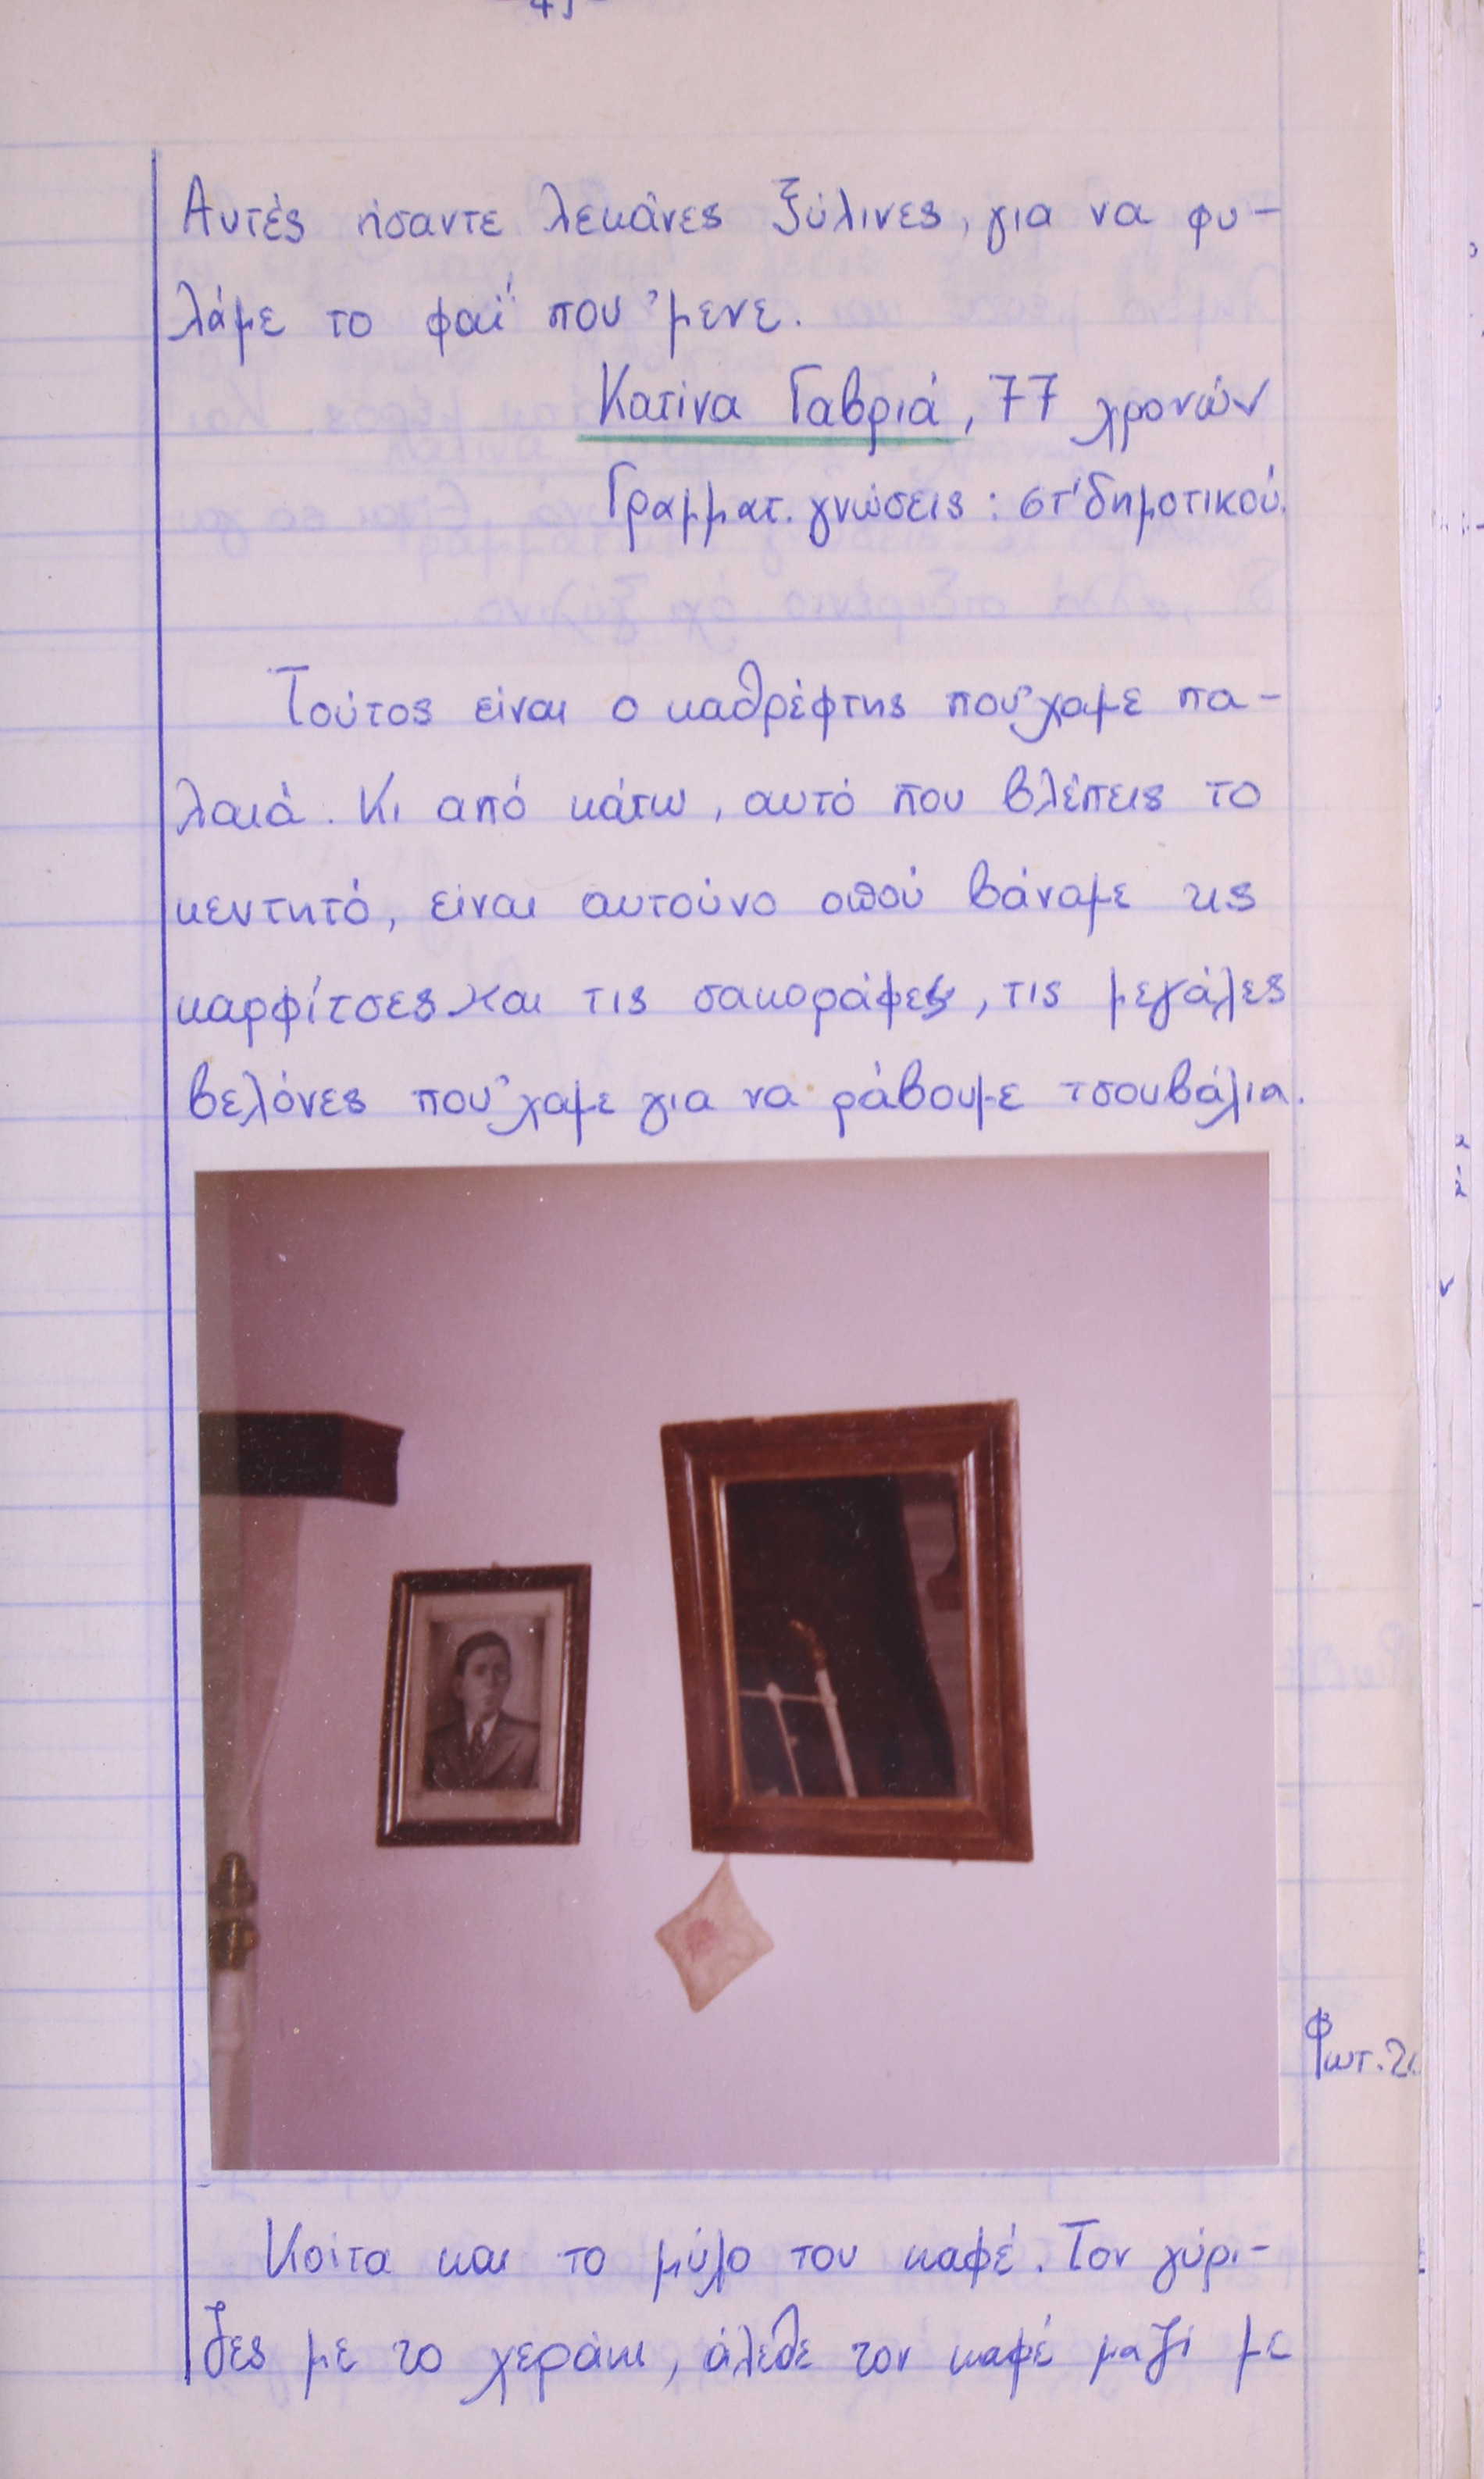 Αυτές ήσαντε λεκάνες ξύλινες, για να φυ-
λάμε το φαΐ που 'μενε.
Κατίνα Γαβριά, 77 χρονών
Γραμματ. γνώσεις: στ' δημοτικού.
Τούτος είναι ο καθρέφτης που 'χαμε πα-
λαιά. Κι από κάτω, αυτό που βλέπεις το
κεντητό, είναι αυτούνο οπού βάναμε τις
καρφίτσες και τις σακοράφες, τις μεγάλες
βελόνες που 'χαμε για να ράβουμε τσουβάλια.
Φωτ.
Κοίτα και το μύλο του καφέ. Τον γύρι-
ζες με το χεράκι, άλεθε τον καφέ μαζί με